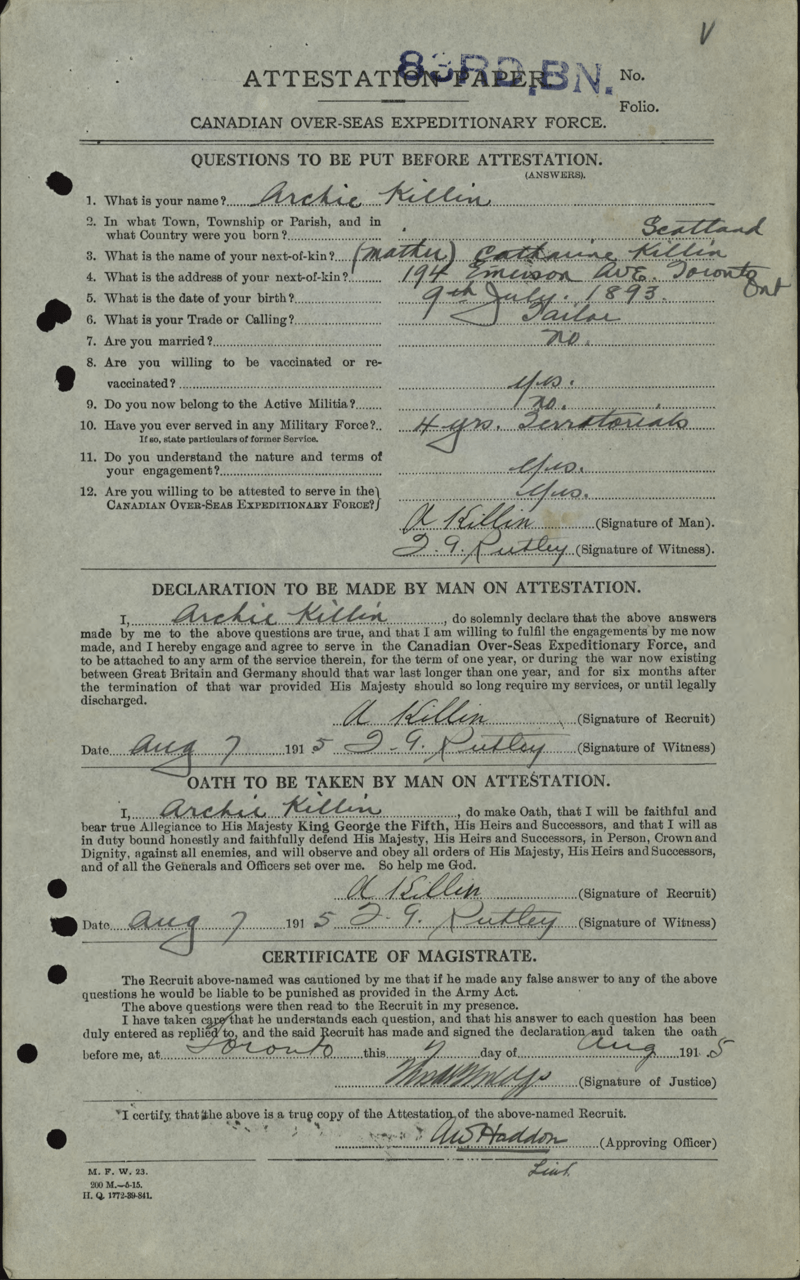 V
83RD. BN.
ATTESTATION PAPER. No.
Folio.
CANADIAN OVER-SEAS EXPEDITIONARY FORCE.
QUESTIONS TO BE PUT BEFORE ATTESTATION.
(ANSWERS).
1. What is your name? Archie Killin
2. In what Town, Township or Parish, and in
what Country were you born? Scotland
3. What is the name of your next-of-kin? (mother) Catharine Killin
4. What is the address of your next-of-kin? 194 Emerson Ave. Toronto Ont
5. What is the date of your birth? 9th July. 1893.
6. What is your Trade or Calling? Tailor
7. Are you married? no.
8. Are you willing to be vaccinated or re-
vaccinated? yes.
9. Do you now belong to the Active Militia? no.
10. Have you ever served in any Military Force? 4 yrs. Territorials
If so, state particulars of former Service.
11. Do you understand the nature and terms of
your engagement? yes.
12. Are you willing to be attested to serve in the
CANADIAN OVER-SEAS EXPEDITIONARY FORCE? yes.
A Killin (Signature of Man).
F. G. Rutley (Signature of Witness).
DECLARATION TO BE MADE BY MAN ON ATTESTATION.
I, Archie Killin, do solemnly declare that the above answers
made by me to the above questions are true, and that I am willing to fulfil the engagements by me now
made, and I hereby engage and agree to serve in the Canadian Over-Seas Expeditionary Force, and
to be attached to any arm of the service therein, for the term of one year, or during the war now existing
between Great Britain and Germany should that war last longer than one year, and for six months after
the termination of that war provided His Majesty should so long require my services, or until legally
discharged.
A Killin (Signature of Recruit)
Date Aug 7 1915 F. G. Rutley (Signature of Witness)
OATH TO BE TAKEN BY MAN ON ATTESTATION.
I, Archie Killin, do make Oath, that I will be faithful and
bear true Allegiance to His Majesty King George the Fifth, His Heirs and Successors, and that I will as
in duty bound honestly and faithfully defend His Majesty, His Heirs and Successors, in Person, Crown and
Dignity, against all enemies, and will observe and obey all orders of His Majesty, His Heirs and Successors,
and of all the Generals and Officers set over me. So help me God.
A Killin (Signature of Recruit)
Date Aug 7 1915 F. G. Rutley (Signature of Witness)
CERTIFICATE OF MAGISTRATE.
The Recruit above-named was cautioned by me that if he made any false answer to any of the above
questions he would be liable to be punished as provided in the Army Act.
The above questions were then read to the Recruit in my presence.
I have taken care that he understands each question, and that his answer to each question has been
duly entered as replied to, and the said Recruit has made and signed the declaration and taken the oath
before me, at Toronto this 7 day of Aug 1915
(Signature of Justice)
I certify that the above is a true copy of the Attestation of the above-named Recruit.
Haddon (Approving Officer)
Lieut.
M. F. W. 23.
200 M.—5-15.
H. Q. 1772-39-841.